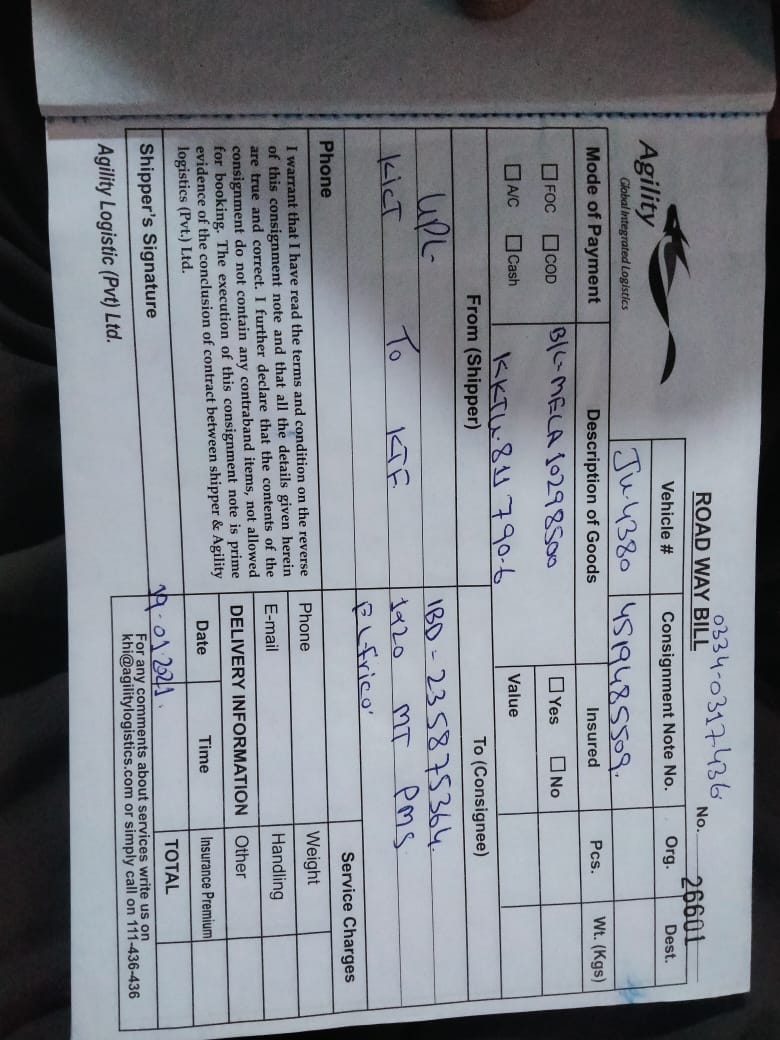 0334-0317436
ROAD WAY BILL No. 26601
Agility
Global Integrated Logistics
Vehicle # Consignment Note No. Org. Dest.
Ju-4380 4519485509.
Mode of Payment Description of Goods Insured Pcs. Wt. (Kgs)
FOC COD B/L-MELA 10298500 Yes No
A/C Cash KKTU-811 790-6 Value
From (Shipper) To (Consignee)
UPL IBD - 235875364.
KicT To KTF 1x20 MT PMS
ELfrico
Phone Service Charges
I warrant that I have read the terms and condition on the reverse
of this consignment note and that all the details given herein
are true and correct. I further declare that the contents of the
consignment do not contain any contraband items, not allowed
for booking. The execution of this consignment note is prime
evidence of the conclusion of contract between shipper & Agility
logistics (Pvt.) Ltd.
Phone Weight
E-mail Handling
DELIVERY INFORMATION Other
Date Time Insurance Premium
19-01.2021. TOTAL
Shipper's Signature
For any comments about services write us on
khi@agilitylogistics.com or simply call on 111-436-436
Agility Logistic (Pvt) Ltd.